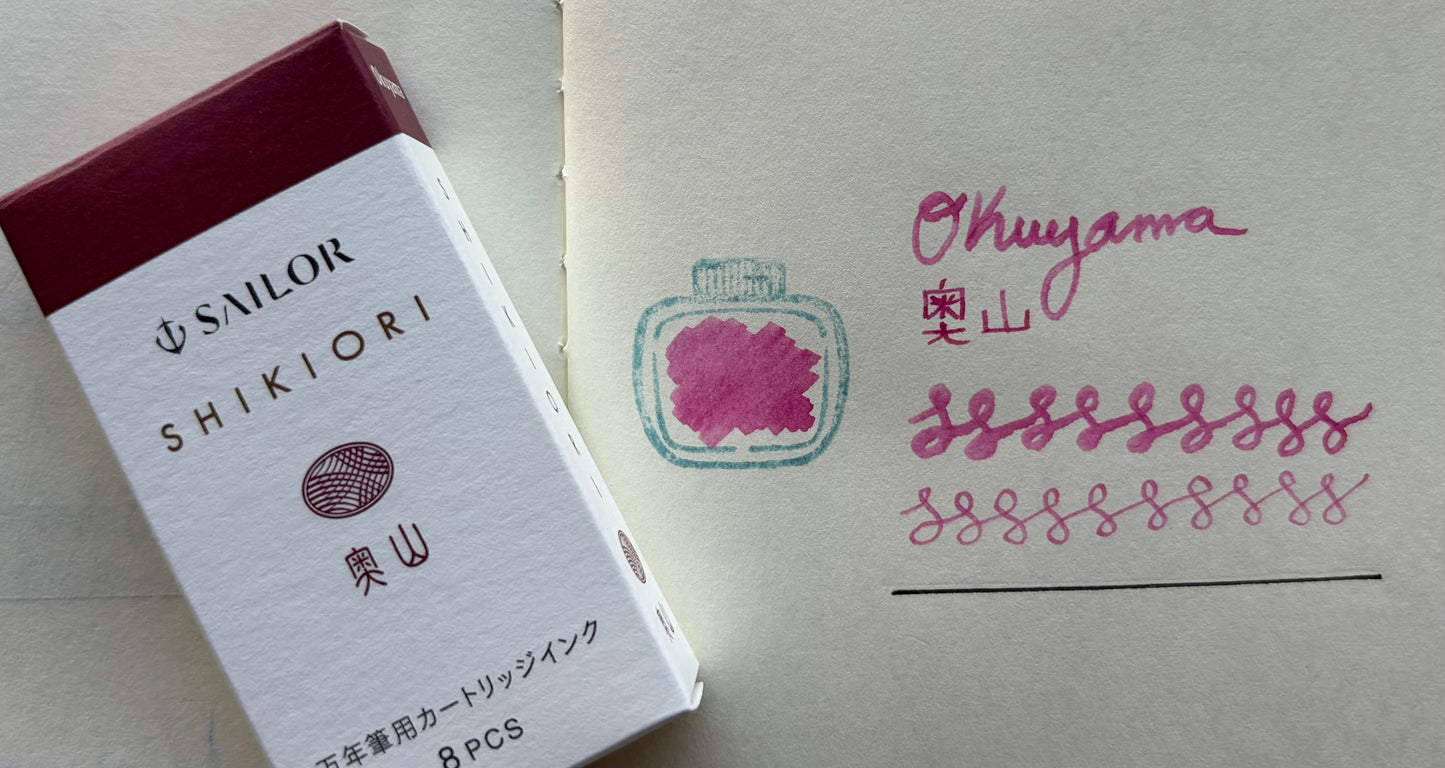 Okuyama
SAILOR
SHIKIORI
奥山
万年筆用カートリッジインク
8 PCS
SHIKIORI
奥山
Okuyama
奥山